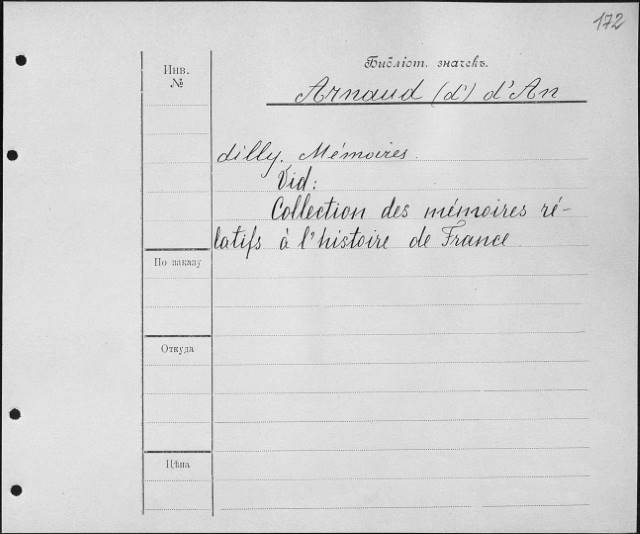 172
Инв.
№
Библіот. значекъ.
Arnaud (d') d'An
dilly. Mémoires.
Vid:
Collection des mémoires ré-
latifs à l'histoire de France
По заказу
Откуда
Цѣна